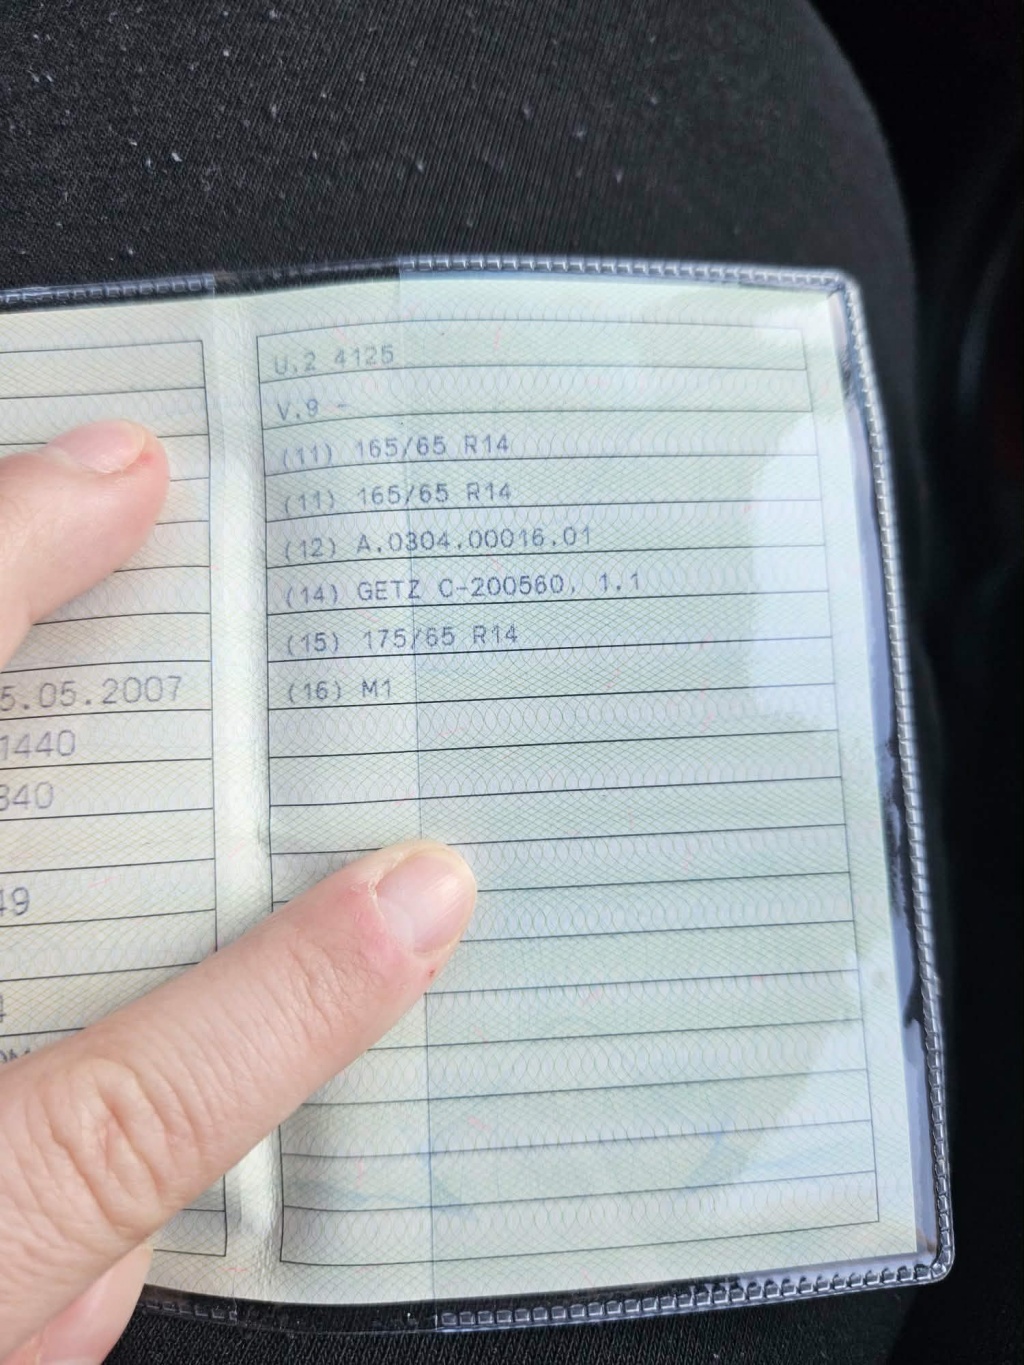 5.05.2007
1440
340
49
4
U.2 4125
V.9 -
(11) 165/65 R14
(11) 165/65 R14
(12) A.0304.00016.01
(14) GETZ C-200560, 1.1
(15) 175/65 R14
(16) M1